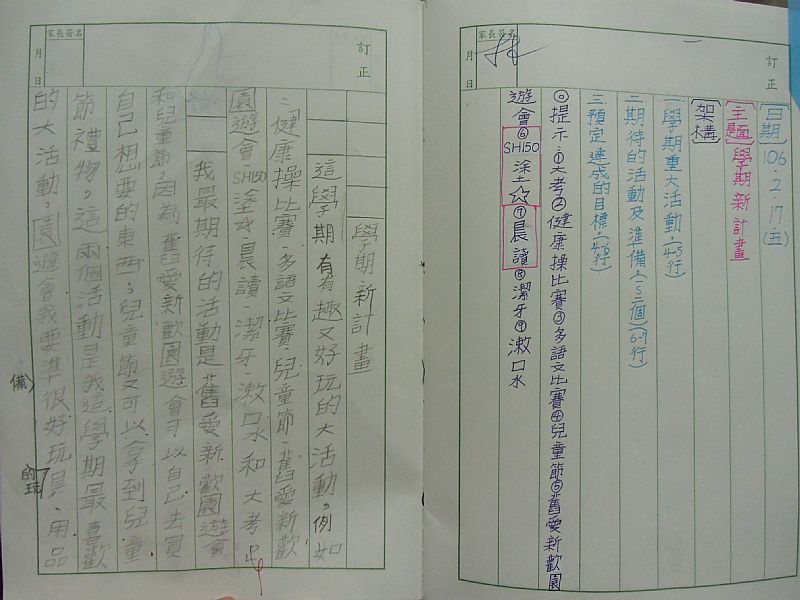 家長簽名
訂正
月 日
日期 106.2.17(五)
主題 學期新計畫
架構
一.學期重大活動.(4-5行)
二.期待的活動及準備.(1-2個)(6-7行)
三.預定達成的目標.(4-6行)
◎提示:①大考②健康操比賽③多語文比賽④兒童節⑤舊愛新歡園
遊會⑥SH150塗去☆⑦晨讀⑧潔牙⑨漱口水
家長簽名
訂正
月 日
學期新計畫
這學期有有趣又好玩的大活動,例如
:健康操比賽、多語文比賽、兒童節、舊愛新歡
園遊會、SH150塗☆、晨讀、潔牙、漱口水和大考。
我最期待的活動是舊愛新歡園遊會
和兒童節,因為,舊愛新歡園遊會可以自己去買
自己想要的東西;兒童節又可以拿到兒童
節禮物,這兩個活動是我這學期最喜歡
的大活動,園遊會我要準很好玩具、用品
備
的玩